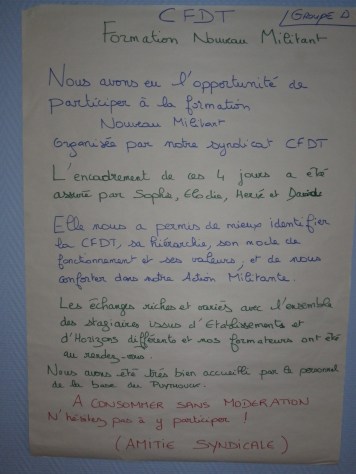 CFDT
/GROUPE A
Formation Nouveau Militant
Nous avons eu l'opportunité de
participer à la formation
Nouveau Militant
Organisée par notre syndicat CFDT
L'encadrement de ces 4 jours a été
assuré par Sophie, Elodie, Hervé et Davide
Elle nous a permis de mieux identifier
la CFDT, sa hiérarchie, son mode de
fonctionnement et ses valeurs, et de nous
conforter dans notre Action Militante.
Les échanges riches et variés avec l'ensemble
des stagiaires issus d'Etablissements et
d'Horizons différents et nos formateurs ont été
au rendez-vous.
Nous avons été très bien accueillis par le personnel
de la base du
A CONSOMMER SANS MODERATION
N'hésitez pas à y participer !
(AMITIE SYNDICALE)